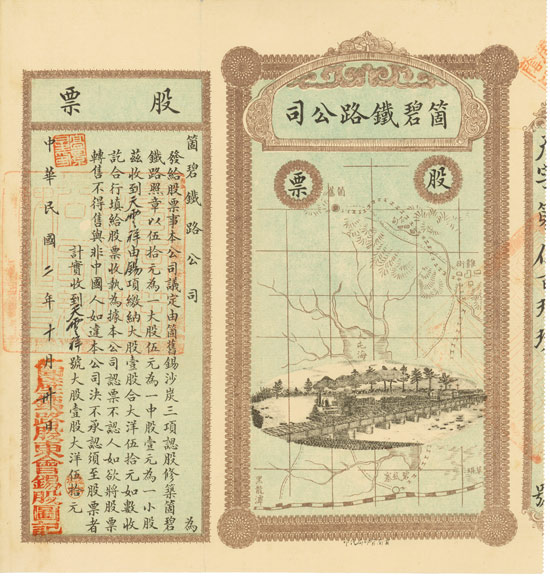 箇碧鐵路公司
股票
箇舊
黑龍潭
股票
箇碧鐵路公司 為
發給股票事本公司議定由箇舊錫沙炭三項認股修築箇碧
鐵路照章以伍拾元為一大股伍元為一中股壹元為一小股
茲收到天雲祥由錫項繳納大股壹股合大洋伍拾元如數收
訖合行填給股票收執為據本公司認票不認人如欲將股票
轉售不得售與非中國人如違本公司決不承認須至股票者
計實收到天雲祥號大股壹股大洋伍拾元
中華民國二年十月廿日
鐵路股東會錫股圖記